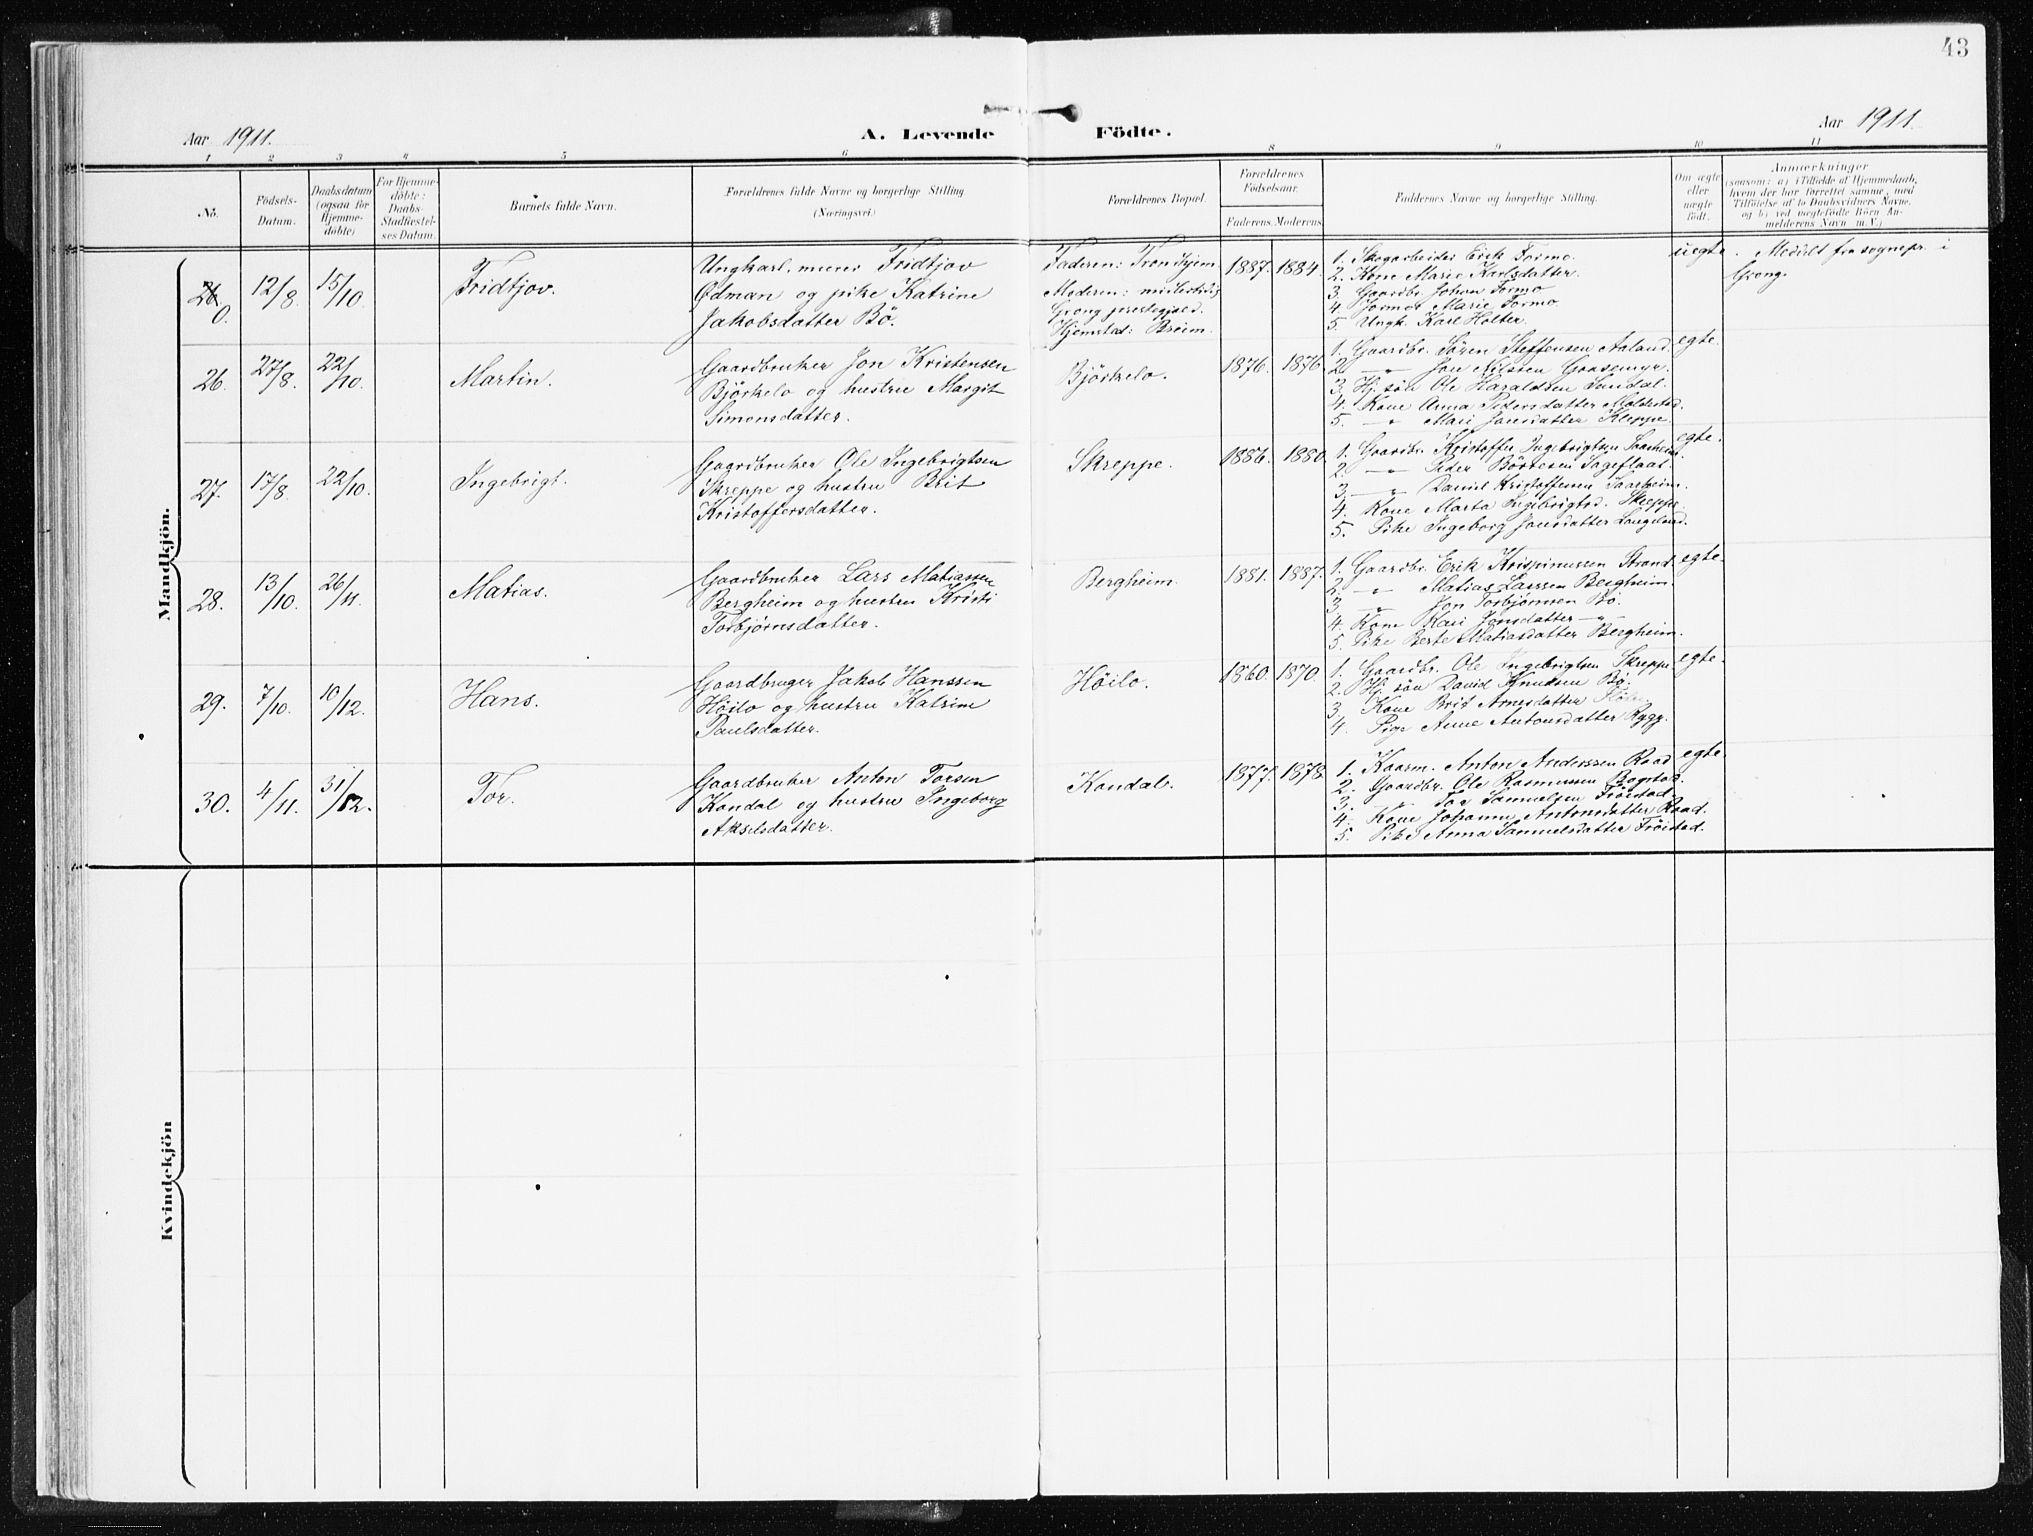 43
Aar 1911.
A. Levende Födte.
Aar 1911.
1 2 3 4 5 6 8 9 10 11
No.
Födsels-
Datum.
Daabsdatum
(ogsaa for
Hjemme-
döbte)
For Hjemme-
döbte:
Daabs-
Stadfæstel-
ses Datum.
Barnets fulde Navn.
Forældrenes fulde Navne og borgerlige Stilling
(Næringsvei.)
Forældrenes Bopæl.
Forældrenes
Födselsaar.
Faderens. Moderens.
Faddernes Navne og borgerlige Stilling.
Om ægte
eller
uægte
födt.
Anmærkninger
(saasom: a) i Tilfælde af Hjemmedaab,
hvem der har forrettet samme, med
Tilföielse af to Daabsvidners Navne,
og b) ved uægtefödte Börn An-
melderens Navn m. V.)
Mandkjön.
26 0. 12/8. 15/10. Fridtjov.
Ungkarl, murer Fridtjov
Ødman og pike Katrine
Jakobsdatter Bö.
Faderen: Trondhjem
Moderen: midlertidig
Grong prestegjeld.
Hjemsted: Breim.
1887. 1884.
1. Skogarbeider Erik Formo.
2. Kone Marie Karlsdatter.
3. Gaardbr. Johan Formo
4. Jormor Marie Formo
5. Ungk. Karl Holter.
uegte. Meddelt fra sognepr. i
Grong.
26. 27/8. 22/10. Martin.
Gaardbruker Jon Kristensen
Björkelo og hustru Margit
Simonsdatter.
Björkelo.
1876. 1876.
1. Gaardbr. Sören Steffensen Aaland.
2. —"— Jon Nilssen Gaasemyr.
3. Hj. sön Ole Haraldsen Sandal.
4. Kone Anna Pedersdatter Moldestad.
5. —"— Mari Jonsdatter Kleppe.
egte.
27. 17/8. 22/10. Ingebrigt.
Gaardbruker Ole Ingebrigtsen
Skreppe og hustru Brit
Kristoffersdatter.
Skreppe.
1886. 1880.
1. Gaardbr. Kristoffer Ingebrigtsen Saarheim
2. —"— Peder Börtesen Sageflaat.
3. —"— Daniel Kristoffersen Saarheim.
4. Kone Marta Ingebrigtsd. Skreppe.
5. Pike Ingeborg Jonsdatter
egte.
28. 13/10. 26/11. Matias.
Gaardbruker Lars Matiassen
Bergheim og hustru Kristi
Torbjørnsdatter.
Bergheim.
1881. 1887.
1. Gaardbr. Erik Krispinussen Strand.
2. —"— Matias Larssen Bergheim.
3. —"— Jon Torbjørnsen Bö.
4. Kone Kari Jonsdatter —"—
5. Pike Berte Matiasdatter Bergheim.
egte.
29. 7/10. 10/12. Hans.
Gaardbruger Jakob Hanssen
Höilo og hustru Katrine
Paulsdatter.
Höilo.
1860. 1870.
1. Gaardbr. Ole Ingebrigtsen Skreppe
2. Hj. sön David Knutsen Bö.
3. Kone Brit Arnesdatter
4. Pige Anne Antonsdatter Rygg.
egte.
30. 4/11. 31/12. Tor.
Gaardbruker Anton Torsen
Kandal og hustru Ingeborg
Akselsdatter.
Kandal.
1877. 1878.
1. Kaarm. Anton Anderssen Raad
2. Gaardbr. Ole Rasmussen Bogstad.
3. —"— Tor Samuelsen Fröistad.
4. Kone Johanne Antonsdatter Raad.
5. Pike Anna Samuelsdatter Fröistad.
egte.
Kvindekjön